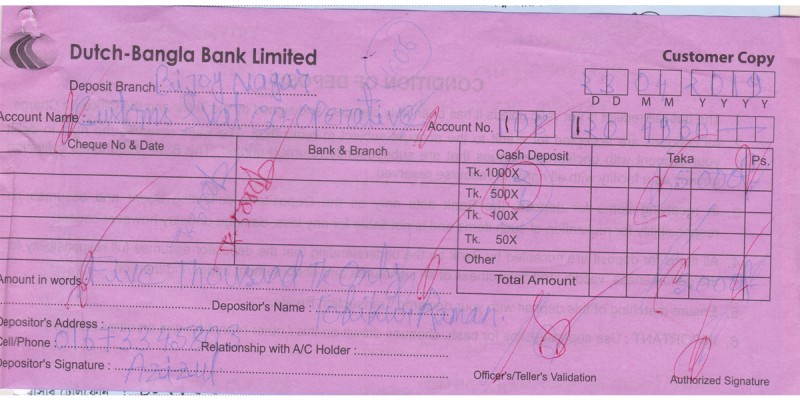 Dutch-Bangla Bank Limited
Customer Copy
Deposit Branch: Bijoy Nagar
23 04 2019
D D M M Y Y Y Y
Account Name: Customs & Vat Co-Operative Account No.
Cheque No & Date Bank & Branch Cash Deposit Taka Ps.
Tk. 1000X 5000/-
Tk. 500X
Tk. 5000/-
Tk. 100X
Tk. 50X
Other
Amount in words: Five Thousand Tk Only Total Amount 5000/-
Depositor's Name:
Depositor's Address:
Cell/Phone: Relationship with A/C Holder:
Depositor's Signature: Azizul
Officer's/Teller's Validation Authorized Signature